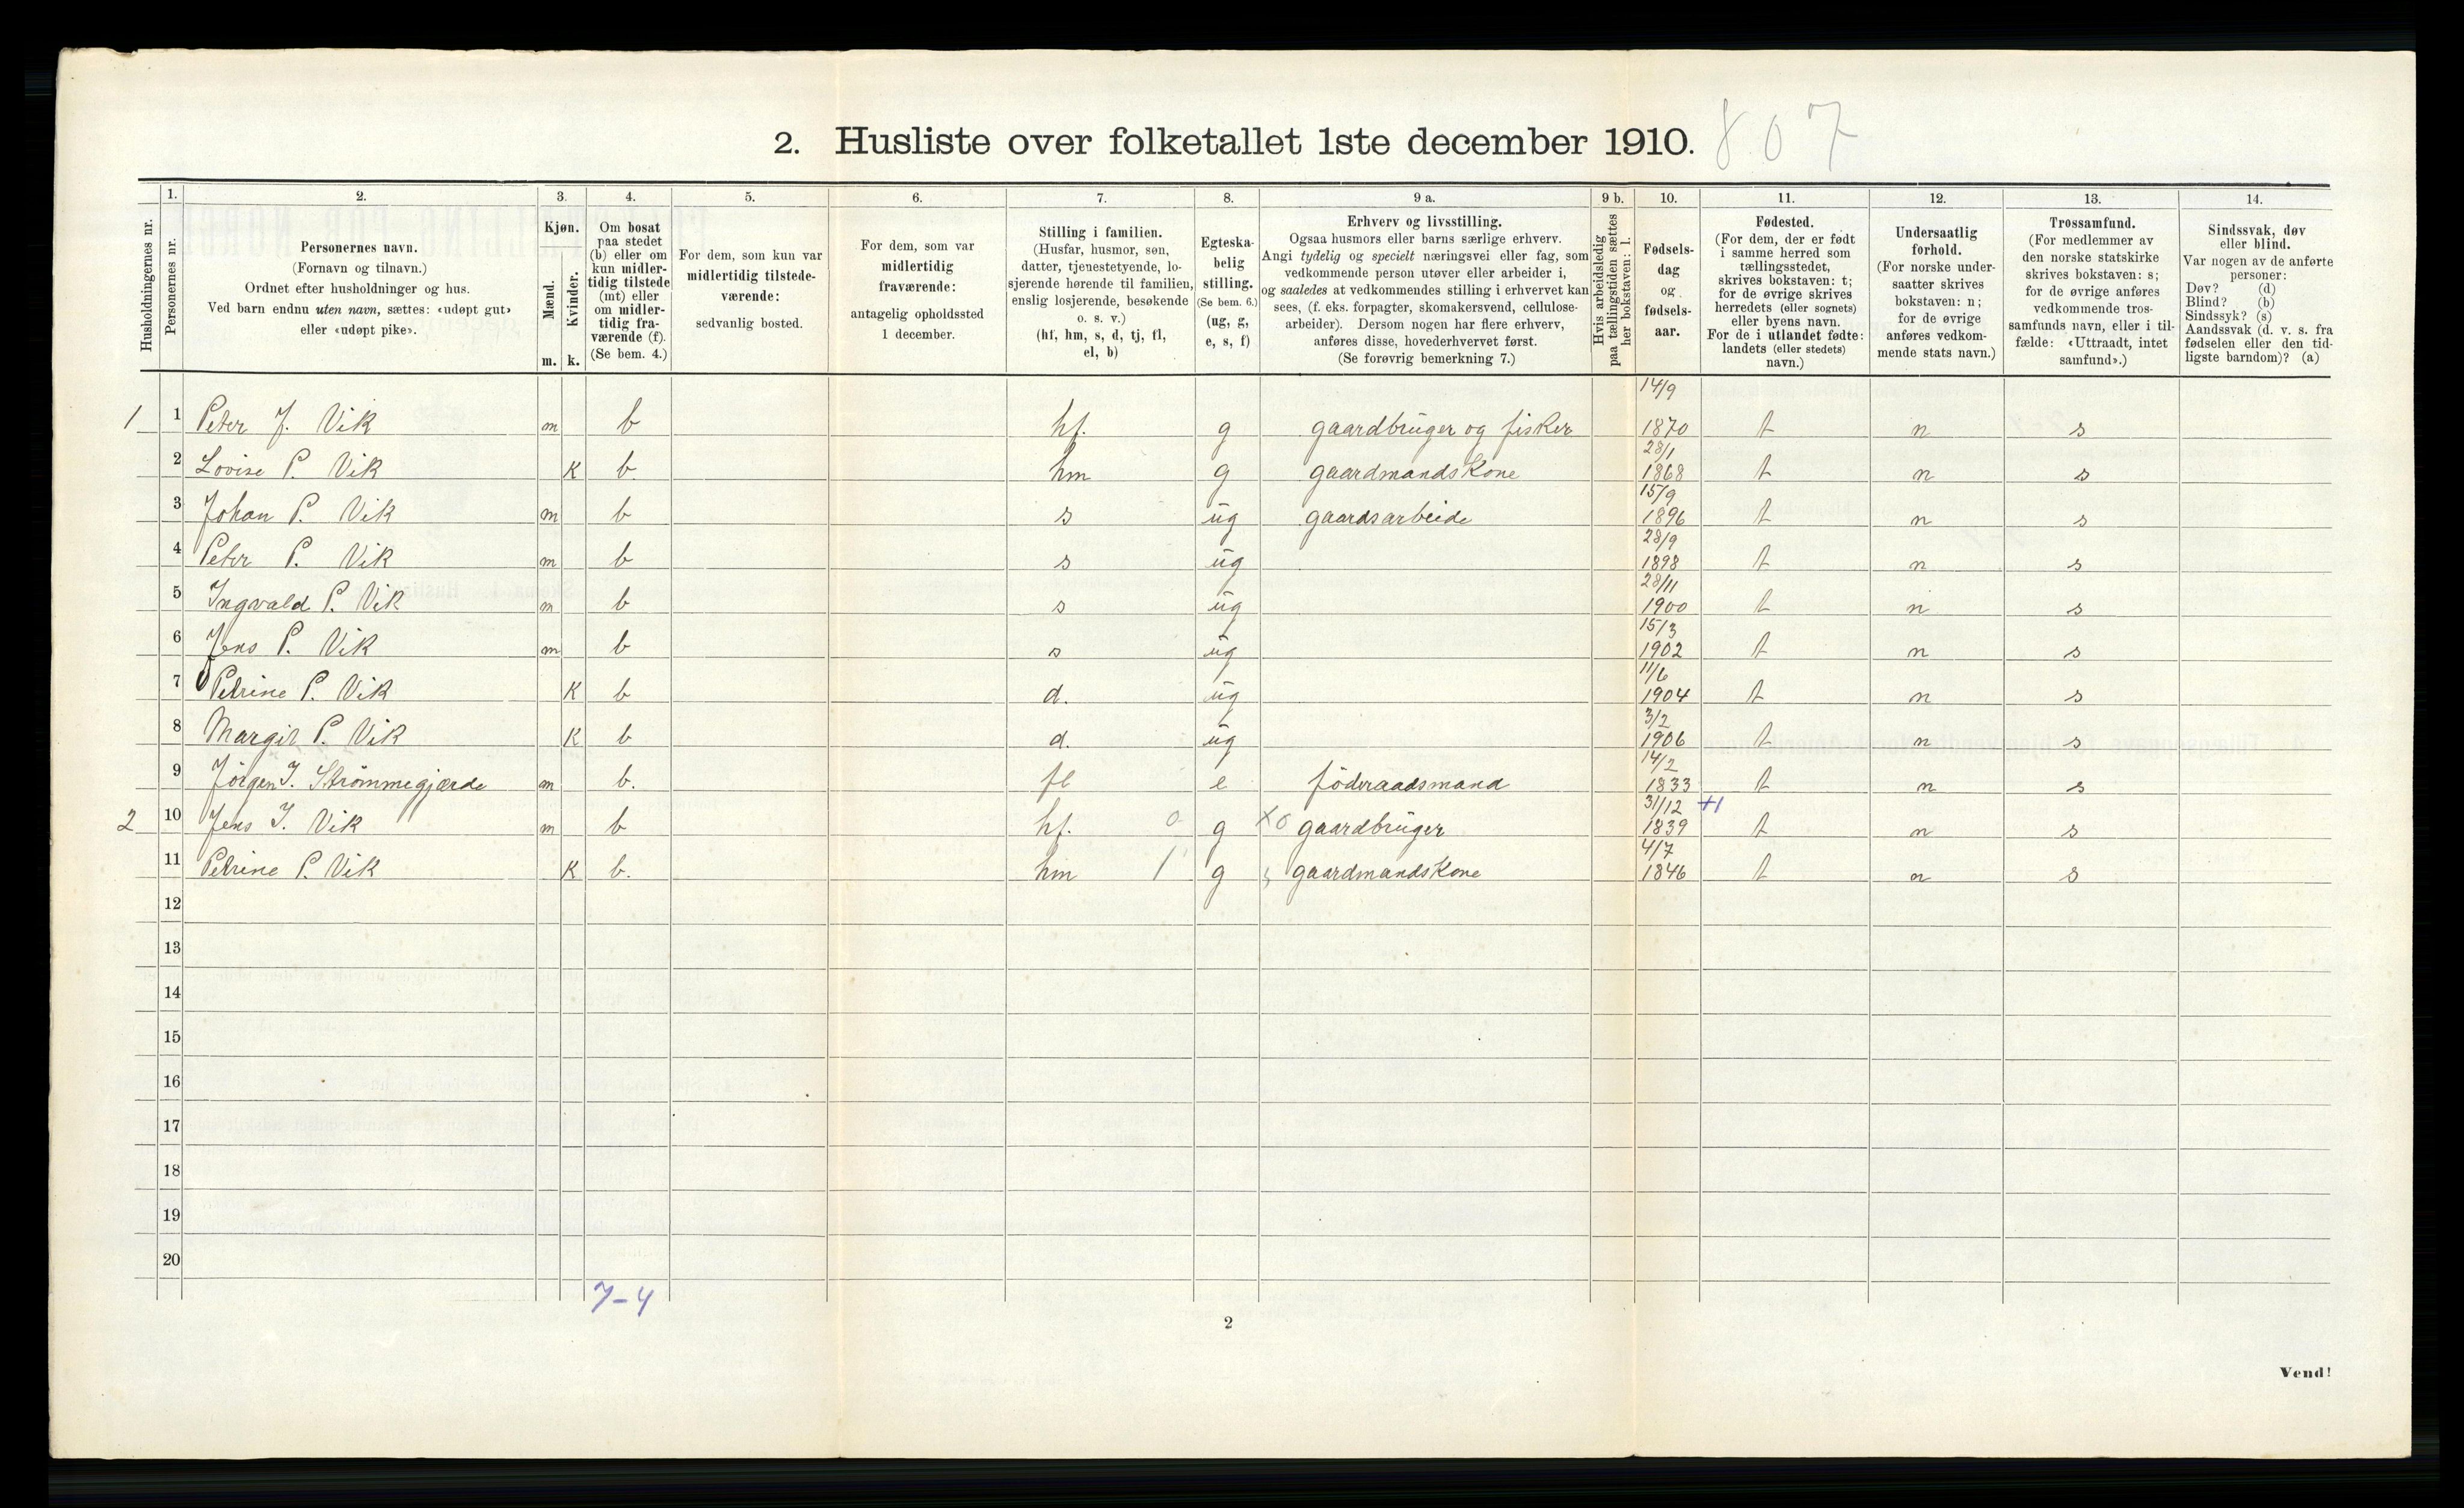 2. Husliste over folketallet 1ste december 1910. 807
Husholdningernes nr.
1. Personernes nr.
2. Personernes navn. (Fornavn og tilnavn.) Ordnet efter husholdninger og hus. Ved barn endnu uten navn, sættes: «udøpt gut» eller «udøpt pike».
3. Kjøn. Mænd. m. Kvinder. k.
4. Om bosat paa stedet (b) eller om kun midlertidig tilstede (mt) eller om midlertidig fraværende (f). (Se bem. 4.)
5. For dem, som kun var midlertidig tilstedeværende: sedvanlig bosted.
6. For dem, som var midlertidig fraværende: antagelig opholdssted 1 december.
7. Stilling i familien. (Husfar, husmor, søn, datter, tjenestetyende, losjerende hørende til familien, enslig losjerende, besøkende o. s. v.) (hf, hm, s, d, tj, fl, el, b)
8. Egteskabelig stilling. (Se bem. 6.) (ug, g, e, s, f)
9 a. Erhverv og livsstilling. Ogsaa husmors eller barns særlige erhverv. Angi tydelig og specielt næringsvei eller fag, som vedkommende person utøver eller arbeider i, og saaledes at vedkommendes stilling i erhvervet kan sees, (f. eks. forpagter, skomakersvend, cellulosearbeider). Dersom nogen har flere erhverv, anføres disse, hovederhvervet først. (Se forøvrig bemerkning 7.)
9 b. Hvis arbeidsledig paa tællingstiden sættes her bokstaven: l.
10. Fødselsdag og fødselsaar.
11. Fødested. (For dem, der er født i samme herred som tællingsstedet, skrives bokstaven: t; for de øvrige skrives herredets (eller sognets) eller byens navn. For de i utlandet fødte: landets (eller stedets) navn.)
12. Undersaatlig forhold. (For norske undersaatter skrives bokstaven: n; for de øvrige anføres vedkommende stats navn.)
13. Trossamfund. (For medlemmer av den norske statskirke skrives bokstaven: s; for de øvrige anføres vedkommende trossamfunds navn, eller i tilfælde: «Uttraadt, intet samfund».)
14. Sindssvak, døv eller blind. Var nogen av de anførte personer: Døv? (d) Blind? (b) Sindssyk? (s) Aandssvak (d. v. s. fra fødselen eller den tidligste barndom)? (a)
1 1 Peter J. Vik m b hf. g gaardbruger og fisker 14/9 1870 t n s
2 Lovise P. Vik K b. hm g gaardmandskone 28/1 1868 t n s
3 Johan P. Vik m b s ug gaardsarbeide 15/9 1896 t n s
4 Peter P. Vik m b s ug 28/9 1898 t n s
5 Ingvald P. Vik m b s ug 28/11 1900 t n s
6 Jens P. Vik m b s ug 15/3 1902 t n s
7 Petrine P. Vik K b d. ug 11/6 1904 t n s
8 Margit P. Vik K b d. ug 3/2 1906 t n s
9 Jörgen I. Strömmegjærde m b. fl e föderaadsmand 14/2 1833 t n s
2 10 Jens I. Vik m b hf. 0 g x0 gaardbruger 31/12 1839 +1 t n s
11 Petrine P. Vik K b. hm 1 g gaardmandskone 4/7 1846 t n s
12
13
14
15
16
17
18
19
20
7-4
2
Vend!